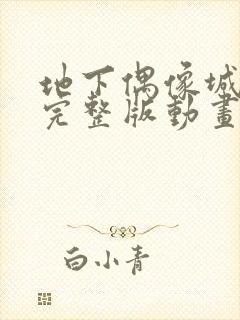 地下偶像城
完整版動畫
白小青